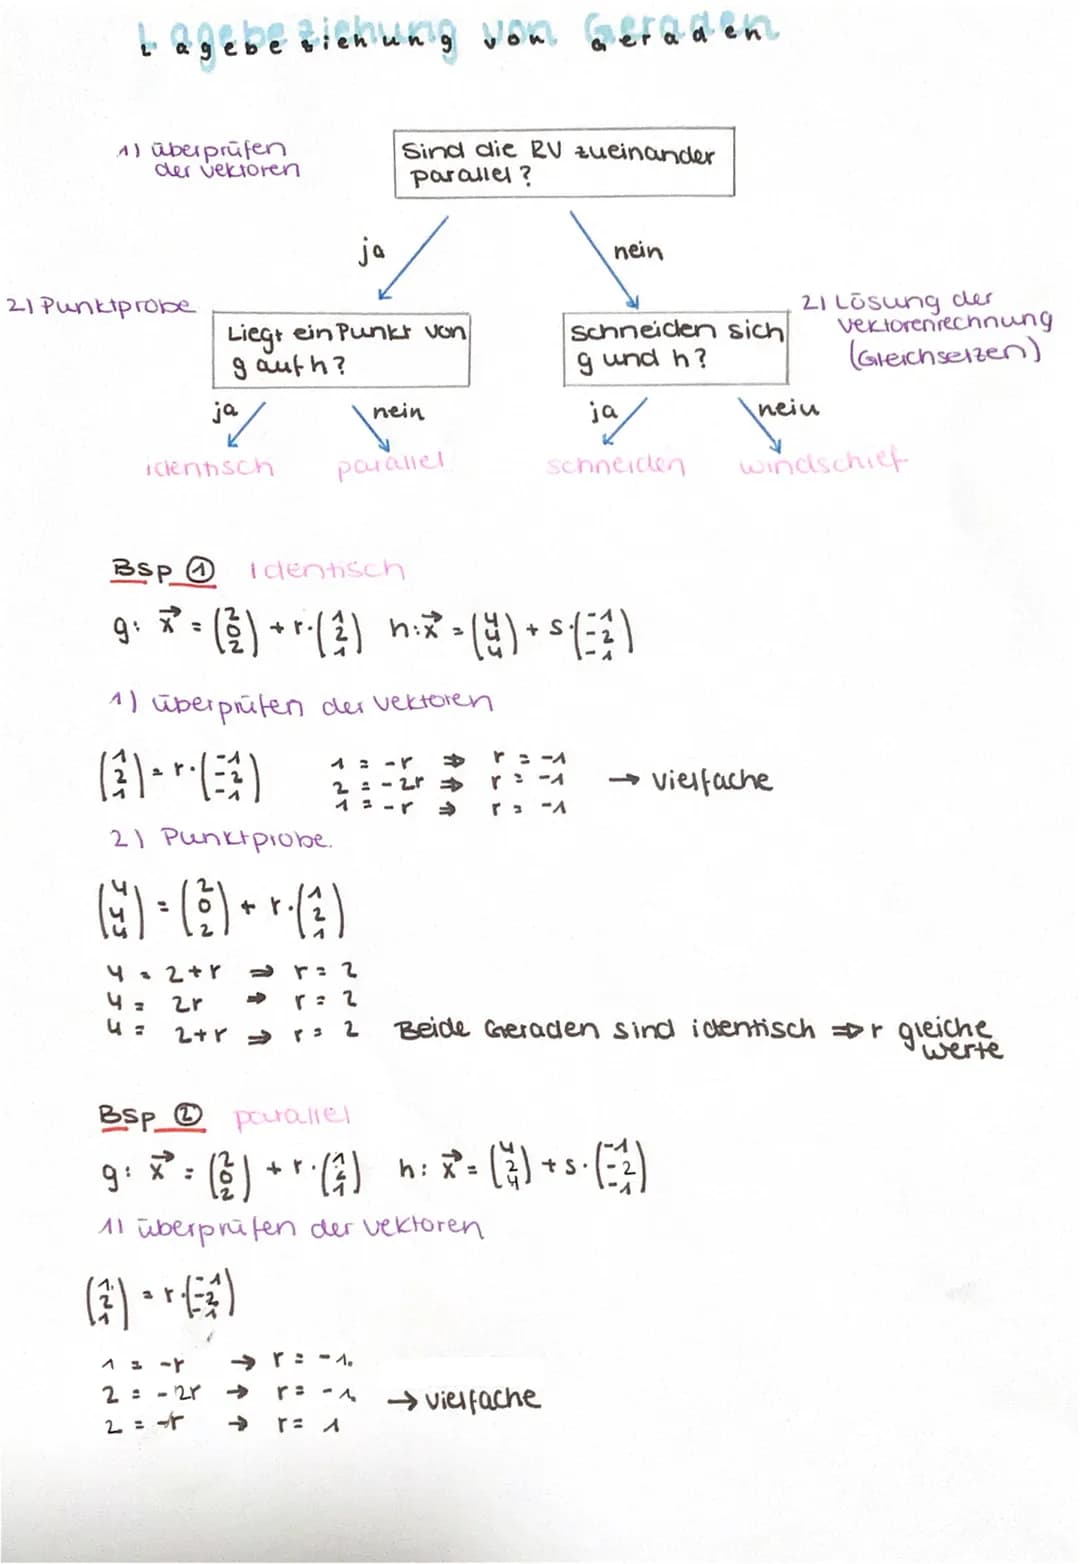 Lagebeziehung von Geraden
1) überprüfen
der Vektoren
Sind die RV zueinander
parallel?
ja
nein
2) Punktprobe
Liegt ein Punkt von
g auf h?
schneiden sich
g und h?
2) Lösung der
Vektorenrechnung
(Gleichsetzen)
ja
nein
ja
nein
identisch
parallel
schneiden
windschief
Bsp ① Identisch
g: x⃗ = (2 0 2) + r·(1 2 1) h: x⃗ = (4 4 4) + s·(-1 -2 -1)
1) überprüfen der Vektoren
(1 2 1) = r·(-1 -2 -1)
1 = -r ⇒ r = -1
2 = -2r ⇒ r = -1 → vielfache
1 = -r ⇒ r = -1
2) Punktprobe.
(4 4 4) = (2 0 2) + r·(1 2 1)
4 = 2+r ⇒ r = 2
4 = 2r ⇒ r = 2
4 = 2+r ⇒ r = 2 Beide Geraden sind identisch ⇒ r gleiche
werte
Bsp ② parallel
g: x⃗ = (2 0 2) + r·(1 2 1) h: x⃗ = (4 2 4) + s·(-1 -2 -1)
1) überprüfen der Vektoren
(1 2 1) = r·(-1 -2 -1)
1 = -r → r = -1.
2 = -2r → r = -1 → vielfache
2 = -r → r = 1